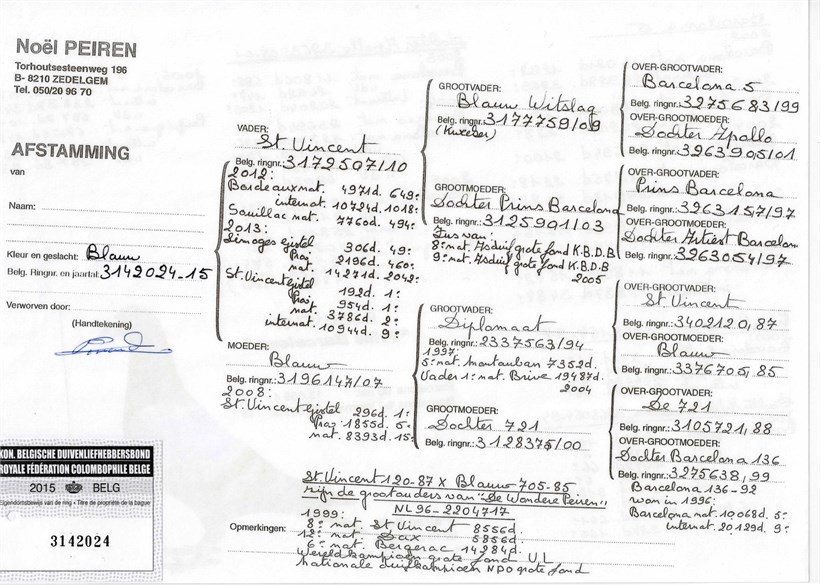 Noël PEIREN
Torhoutsesteenweg 196
B- 8210 ZEDELGEM
Tel. 050/20 96 70
AFSTAMMING
van
Naam:
Kleur en geslacht: Blauw
Belg. Ringnr. en jaartal: 3142024-15
Verworven door:
(Handtekening)
KON. BELGISCHE DUIVENLIEFHEBBERSBOND
ROYALE FÉDÉRATION COLOMBOPHILE BELGE
2015 BELG
Eigendomsbewijs van de ring • Titre de propriété de la bague
3142024
VADER:
St. Vincent
Belg. ringnr.: 3172507/10
2012:
Bordeaux nat. 4971d. 649:
internat. 10724d. 1018:
Souillac nat. 7760d. 494:
2013:
Limoges ijstel 306d. 49:
Prov. 2196d. 460:
nat. 14271d. 2042:
St. Vincent ijstel
192d. 1:
Prov. 954d. 1:
nat. 3786d. 2:
internat. 10944d. 9:
MOEDER:
Blauw
Belg. ringnr.: 3196147/07
2008:
St. Vincent ijstel 296d. 1:
Prov. 1855d. 5:
nat. 8393d. 15:
GROOTVADER:
Blauw Witslag
Belg. ringnr.: 3177759/09
(Kweker)
GROOTMOEDER:
Dochter Prins Barcelona
Belg. ringnr.: 3125901/03
Zus van:
8: nat. Asduif grote fond K.B.D.B
9: nat. Asduif grote fond K.B.D.B
2005
GROOTVADER:
Diplomaat
Belg. ringnr.: 2337563/94
1997:
5: nat. Montauban 7352d.
Vader 1: nat. Brive 19487d.
2004
GROOTMOEDER:
Dochter 721
Belg. ringnr.: 3128375/00
OVER-GROOTVADER:
Barcelona 5
Belg. ringnr.: 3275683/99
OVER-GROOTMOEDER:
Dochter Apollo
Belg. ringnr.: 3263905/01
OVER-GROOTVADER:
Prins Barcelona
Belg. ringnr.: 3263157/97
OVER-GROOTMOEDER:
Dochter Artiest Barcelon
Belg. ringnr.: 3263054/97
OVER-GROOTVADER:
St. Vincent
Belg. ringnr.: 3402120, 87
OVER-GROOTMOEDER:
Blauw
Belg. ringnr.: 3376705, 85
OVER-GROOTVADER:
De 721
Belg. ringnr.: 3105721, 88
OVER-GROOTMOEDER:
Dochter Barcelona 136
Belg. ringnr.: 3275638, 99
Barcelona 136-92
won in 1996:
Barcelona nat. 10068d. 5:
internat. 20129d. 9:
St. Vincent 120-87 x Blauw 705-85
zijn de grootouders van "De Wondere Peiren"
NL 96-2204717
1999:
Opmerkingen: 8: nat. St Vincent 8556d.
12: nat. Dax 5856d.
6: nat. Bergerac 14284d.
Wereldkampioen grote fond V.L
nationale duifkampioen NPO grote fond